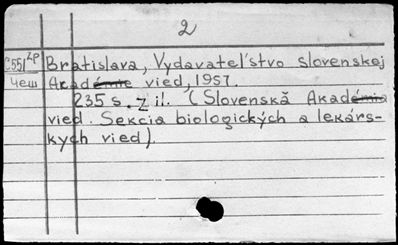 2
С551 zp Bratislava, Vydavateľstvo slovenskej
Чеш Akadémie vied, 1957.
235 s. z il. (Slovenská Akadémia
vied. Sekcia biologických a lekárs-
kych vied).